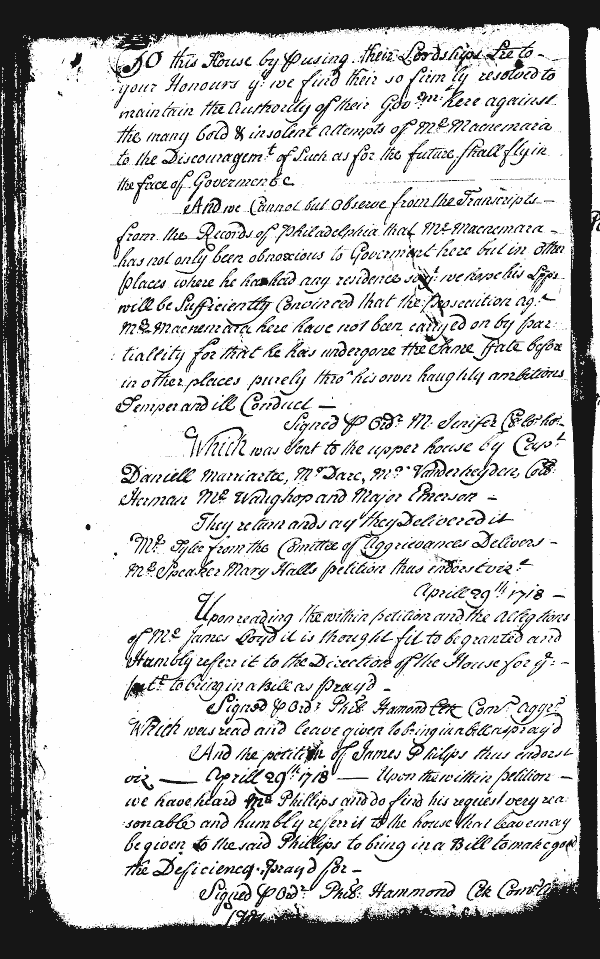 So this House by pusing their Lordships Lre to
your Honours yt we find their so firmly resolved to
maintain the Authority of their Govmt here against
the many bold & insolent Attempts of Mr Macnemara
to the Discouragemt of Such as for the future shall fly in
the face of Governmt &c
And we Cannot but Observe from the Transcripts
from the Records of Philadelphia that Mr Macnemara
has not only been obnoxious to Governmt here but in other
places where he has had any residence so yt we hope his Lpps
will be Sufficiently Convinced that the Prosecution agt
Mr Macnemara here have not been carryed on by par
tiallity for that he has undergone the Same Fate before
in other places purely thro his own haughty ambitious
Temper and ill Conduct —
Signed P Ordr M. Jenifer
Which was Sent to the upper house by Capt
Daniell Marriartee, Mr Dare, Mr Vanderheyden, Coll
Herman Mr Waughop and Major Emerson —
They return and say they Delivered it
Mr Tyler from the Comittee of Aggrievances Delivers
Mr Speaker Mary Halls petition thus endorst vizt
Aprill 29th 1718 —
Upon reading the within petition and the Allegtions
of Mr James Loyd it is thought fit to be granted and
Humbly referr it to the Direction of the House for ye
to bring in a Bill as prayd —
Signed P Ordr Phil. Hamond Clk Comr Aggrs
Which was read and leave given to bring in a bill as prayd
And the petition of James Philips thus endorst
viz — Aprill 29th 1718 — Upon the within petition
we have heard Mr Phillips and do find his request very rea
sonable and humbly referr it to the house that leave may
be given to the said Phillips to bring in a Bill to make good
the Deficiency prayd for —
Signed P Ordr Phil. Hammond Clk Comr